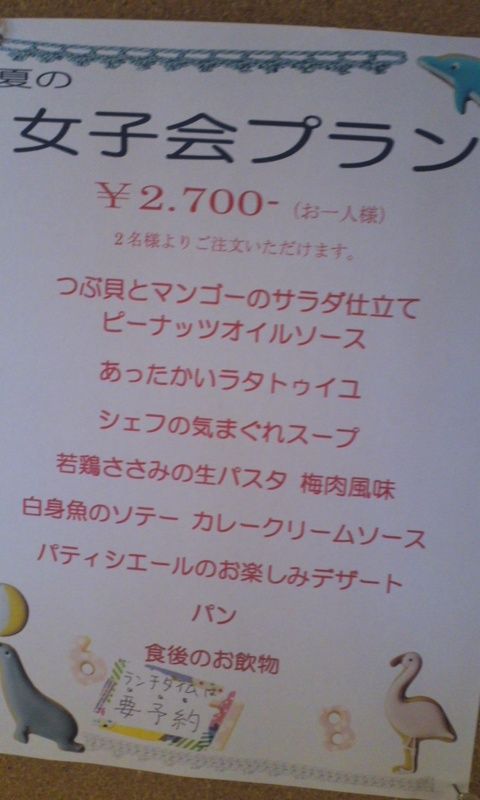 夏の
女子会プラン
￥2.700-（お一人様）
2名様よりご注文いただけます。
つぶ貝とマンゴーのサラダ仕立て
ピーナッツオイルソース
あったかいラタトゥイユ
シェフの気まぐれスープ
若鶏ささみの生パスタ 梅肉風味
白身魚のソテー カレークリームソース
パティシエールのお楽しみデザート
パン
食後のお飲物
ランチタイムは
要予約